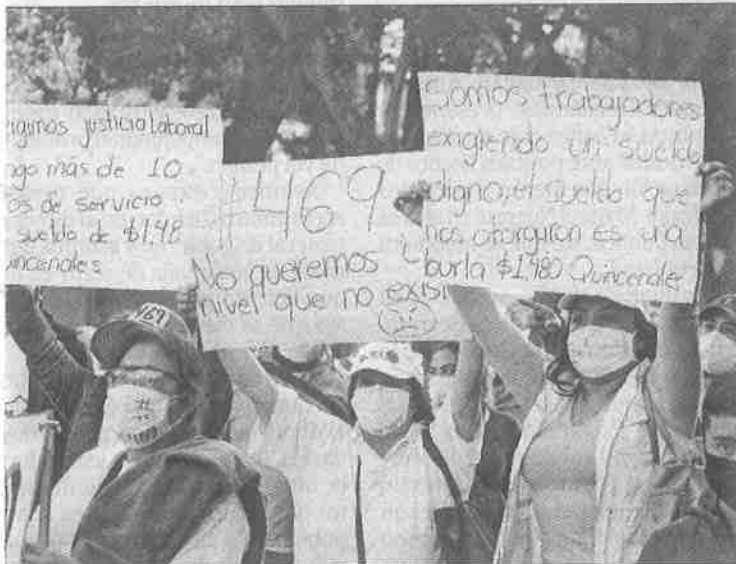 igimos justicia laboral
go más de 10
os de servicio
sueldo de $1,48
uincenales
#469
No queremos
nivel que no exis
Somos trabajadores
exigiendo un sueldo
digno, el sueldo que
nos otorgaron es una
burla $1,480 Quincenales
469
#